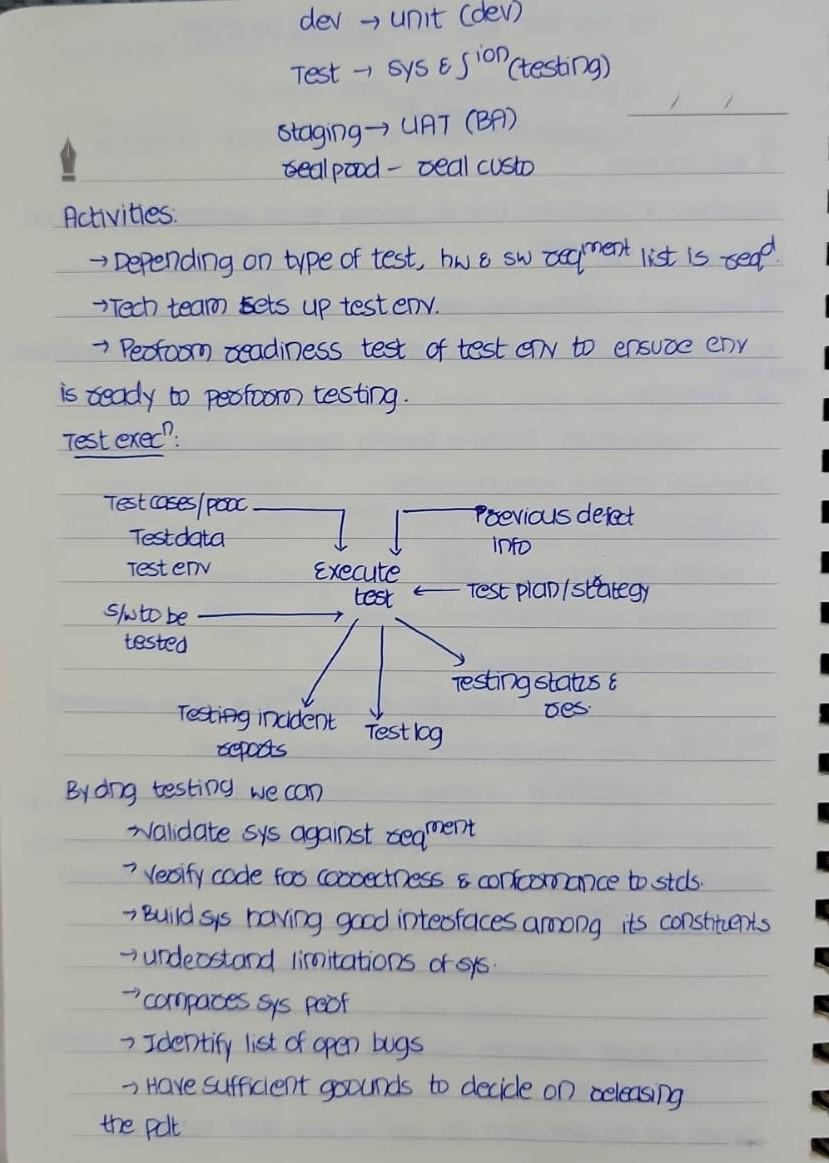 dev → unit (dev)
Test → sys & ∫ion (testing)
/ /
staging → UAT (BA)
real prod - real custo
Activities:
→ Depending on type of test, hw & sw reqment list is reqd.
→ Tech team sets up test env.
→ Perform readiness test of test env to ensure env
is ready to perform testing.
Test execn:
Test cases/proc
Test data
Test env
Previous defect
info
Execute
test
Test plan/stategy
S/w to be
tested
Testing incident
reports
Test log
Testing status &
res.
By dng testing we can
→ Validate sys against reqment
→ Verify code for correctness & conformance to stds.
→ Build sys having good interfaces among its constituents
→ understand limitations of sys.
→ compares sys perf
→ Identify list of open bugs
→ Have sufficient grounds to decide on releasing
the pdt